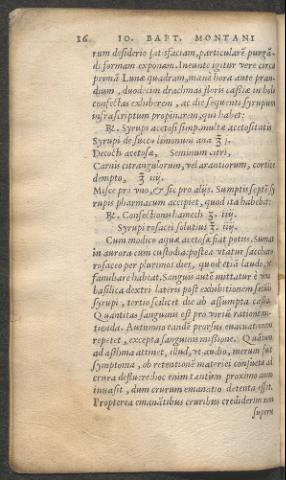 16 IO. BAPT. MONTANI
rum desiderio satisfaciam, particularē purgā-
di formam exponam. Ineunte igitur vere circa
primā Lunæ quadram, manè hora ante pran-
dium, duodecim drachmas floris cassiæ in boli
confectas exhiberem, ac die sequenti syrupum
infrascriptum propinarem, qui habet:
℞. Syrupo acetosi simp. multæ acetositatis
Syrupi de succo limonum ana ℥ j.
Decocti acetosæ, Seminum citri,
Carnis citrangulorum, vel arantiorum, cortice
dempto, ℥ iij.
Misce pro vno, & sic pro alijs. Sumptis septē sy
rupis pharmacum accipiet, quod ita habebit:
℞. Confectionis hamech ʒ. iij.
Syrupi rosacei solutiui ℥. iij.
Cum modico aquæ acetosæ fiat potus, sumat
in aurora cum custodia: postea vtatur saccharo
rosaceo per plurimos dies, quod etiā laudo, vt
familiare habeat. Sanguis autē mittatur è vena
basilica dextri lateris post exhibitionem secūdi
syrupi, tertio scilicet die ab assumpta cassia.
Quantitas sanguinis est pro virium ratione mi-
tienda. Autumno eandē prorsus euacuationem
repetet, excepta sanguinis missione. Quātum
ad asthma attinet, illud, vt audio, merum fuit
symptoma, ob retentionē materiei consuetæ ad
crura defluere: hoc enim tantùm proximo anno
inuasit, dum crurum emanatio detenta esset.
Propterea emanātibus cruribus crediderim non
superu